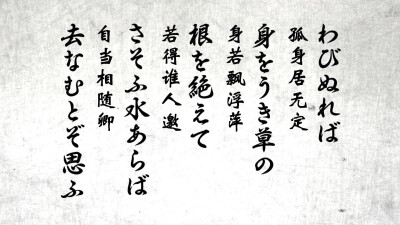 わびぬれば
孤身居无定
身をうき草の
身若飘浮萍
根を絶えて
若得谁人邀
さそふ水あらば
自当相随卿
去なむとぞ思ふ